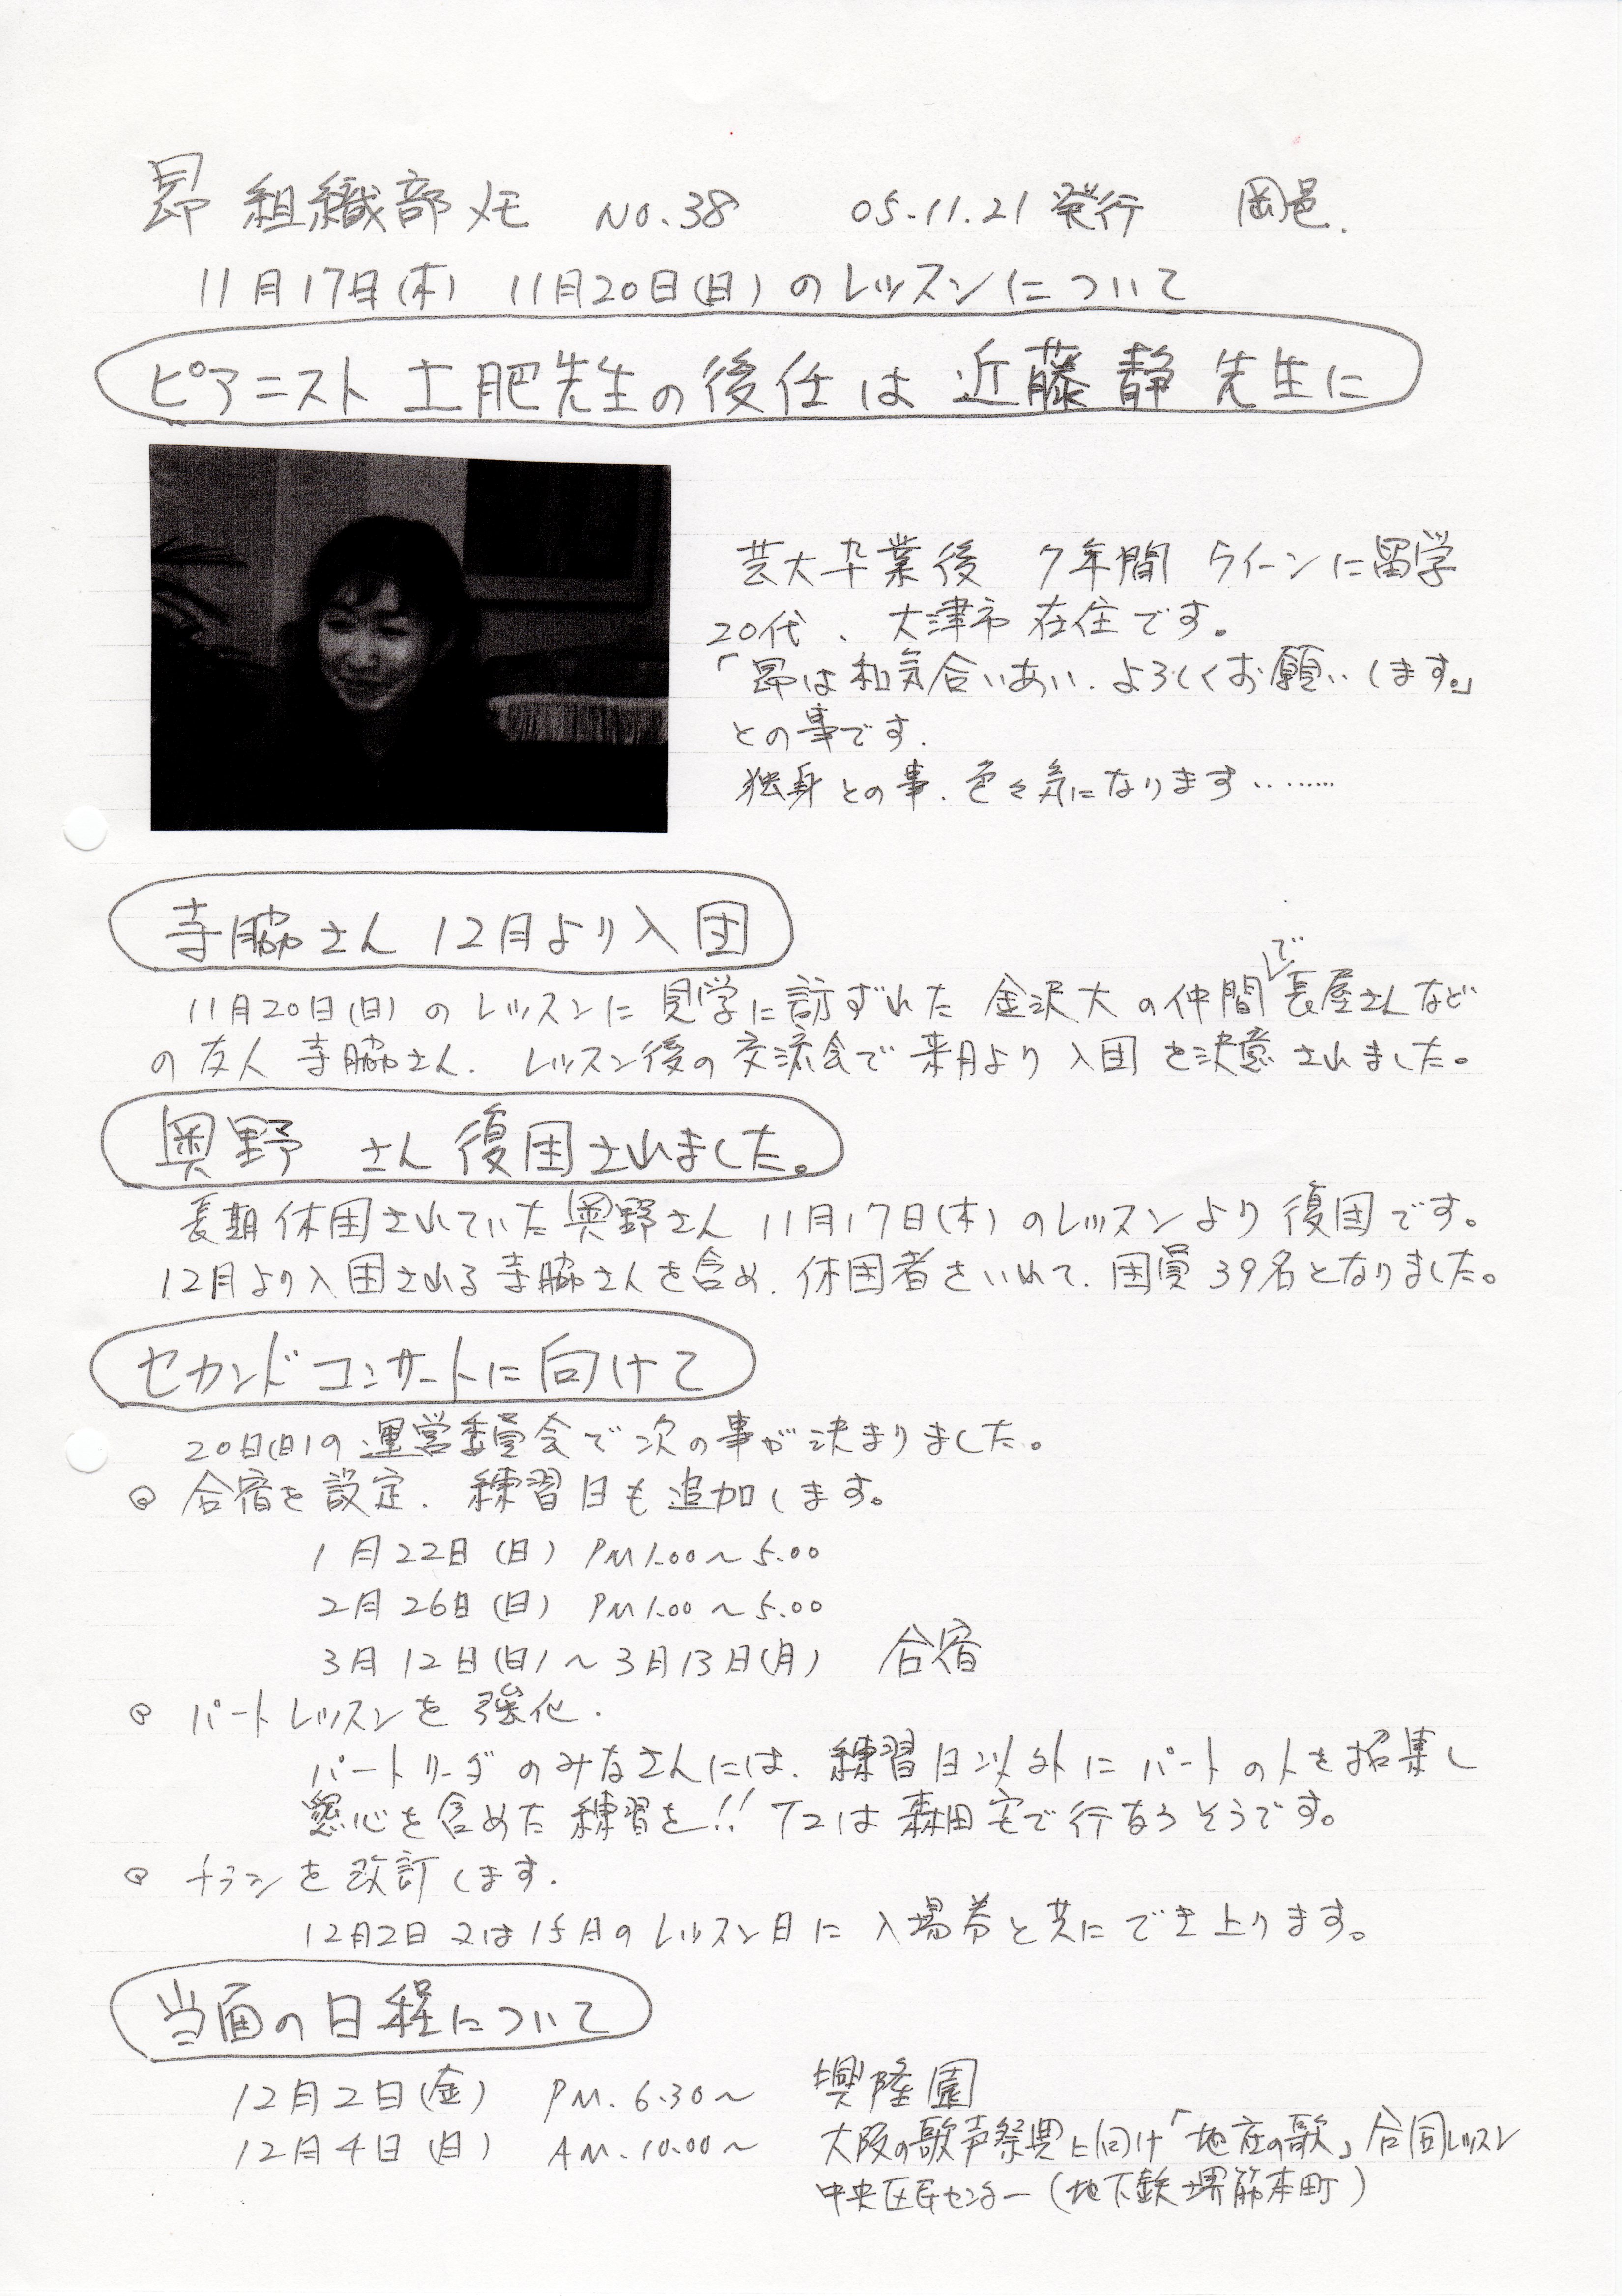 昴 組織部メモ No.38 05.11.21発行 岡邑.
11月17日(木) 11月20日(日)のレッスンについて
ピアニスト 土肥先生の後任は 近藤 静 先生に
芸大卒業後 7年間 ウィーンに留学
20代、大津市在住です。
「昴は和気合いあい.よろしくお願いします。」
との事です.
独身との事.色々気になります‥‥‥
寺脇さん 12月より入団
11月20日(日)のレッスンに見学に訪ずれた 金沢大の仲間で長屋さんなど
の友人 寺脇さん. レッスン後の交流会で来月より入団を決意されました。
奥野 さん復団されました。
長期休団されていた奥野さん 11月17日(木)のレッスンより復団です。
12月より入団される寺脇さんを含め.休団者をいれて.団員39名となりました。
セカンドコンサートに向けて
20日(日)の運営委員会で次の事が決まりました。
合宿を設定. 練習日も追加します。
1月22日(日) PM1.00〜5.00
2月26日(日) PM1.00〜5.00
3月12日(日)〜3月13日(月) 合宿
パートレッスンを強化.
パートリーダのみなさんには.練習日以外にパートの人を招集し
懇心を含めた練習を!! T2は森田宅で行なうそうです。
チラシを改訂します.
12月2日又は15日のレッスン日に入場券と共にでき上ります。
当面の日程について
12月2日(金) PM.6.30〜 興隆園
12月4日(日) AM.10.00〜 大阪の歌声祭典に向け「地在の歌」合同レッスン
中央区民センター(地下鉄堺筋本町)